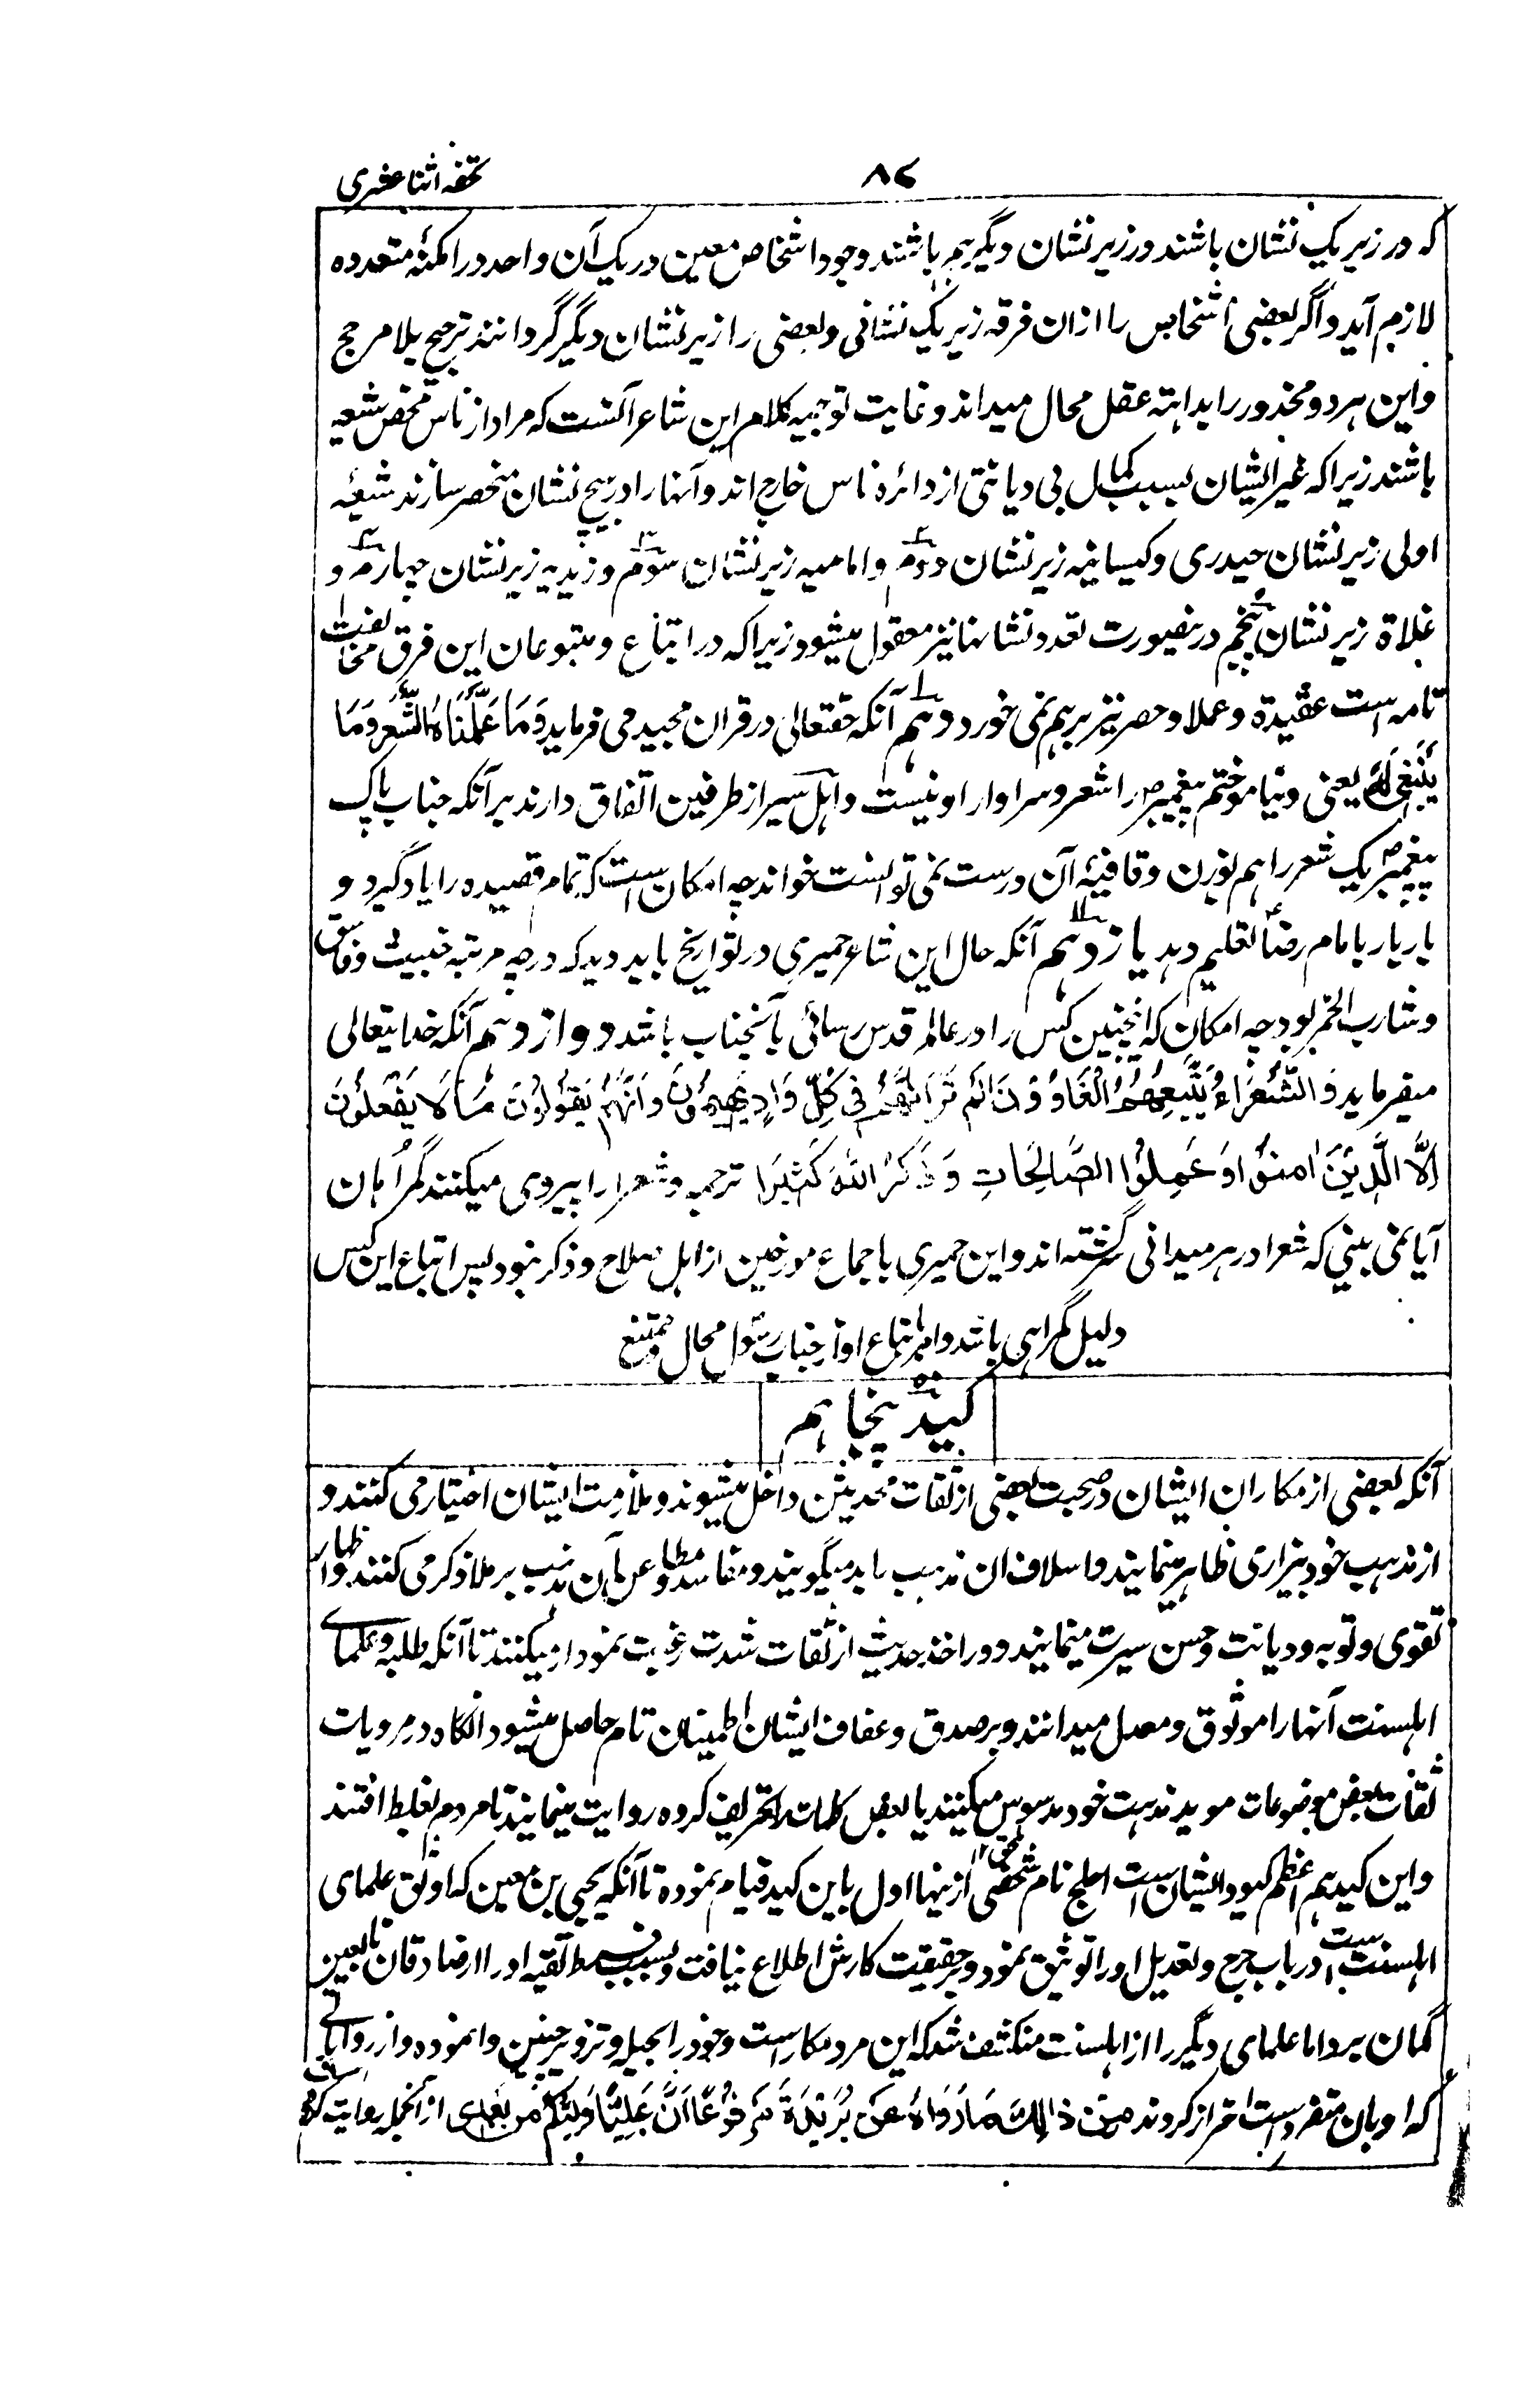 تحفه اثنا عشری
۸۷
که در زیر یک نشان باشند در زیر نشان دیگر هم باشند وجود اشخاص معین در یک آن واحد در امکنهٔ متعدده
لازم آید و اگر بعضی اشخاص را ازان فرقه زیر یک نشانی و بعضی را زیر نشان دیگر گردانند ترجیح بلا مرجح
و این هر دو محذور را بداهته عقل محال میداند و غایت توجیه کلام این شاعر آنست که مراد از ناس محض شیعه
باشند زیرا که غیر ایشان بسبب کمال بی دیانتی از دائره ناس خارج اند و آنها را در پنج نشان منحصر سازند شیعهٔ
اولی زیر نشان حیدری و کیسانیه زیر نشان دوم و امامیه زیر نشان سوم و زیدیه زیر نشان چهارم و
غلاة زیر نشان پنجم درینصورت تعدد نشانها نیز معقول میشود زیرا که در اتباع و متبوعان این فرق مخالفت
تامه است عقیدة و عملا و حصر نیز برهم نمی خورد دهم آنکه حقتعالی در قران مجید می فرماید وَمَا عَلَّمْنَاهُ الشِّعْرَ وَمَا
يَنْبَغِي لَهُ یعنی و نیاموختم پیغمبر را شعر و سزاوار او نیست و اهل سیر از طرفین اتفاق دارند بر آنکه جناب پاک
پیغمبر یک شعر را هم بوزن و قافیهٔ آن درست نمی توانست خواند چه امکان است که تمام قصیده را یاد گیرد و
بار بار بامام رضا تعلیم دهد یازدهم آنکه حال این شاعر حمیری در تواریخ باید دید که در چه مرتبه خبیث و فاسق
و شارب الخمر بود چه امکان که اینچنین کس را در عالم قدس رسائی بآنجناب باشد دوازدهم آنکه خدایتعالی
میفرماید وَالشُّعَرَاءُ يَتَّبِعُهُمُ الْغَاوُوْنَ اَلَمْ تَرَ اَنَّهُمْ فِي كُلِّ وَادٍ يَهِيمُوْنَ وَاَنَّهُمْ يَقُوْلُوْنَ مَا لَا يَفْعَلُوْنَ
اِلَّا الَّذِيْنَ اٰمَنُوْا وَعَمِلُوْا الصَّالِحَاتِ وَذَكَرُ اللهَ كَثِيْرًا ترجمه و شعرا را پیروی میکنند گمراهان
آیا نمی بینی که شعرا در هر میدانی سرگشته اند و این حمیری باجماع مورخین از اهل صلاح و ذکر نبود پس اتباع این کس
دلیل گمراهی باشد و امر باتباع او از جناب رسول محال و ممتنع
کید پنجاهم
آنکه بعضی از مکاران ایشان در صحبت بعضی از ثقات محدثین داخل میشوند و ملازمت ایشان اختیار می کنند و
از مذهب خود بیزاری ظاهر مینمایند و اسلاف ان مذهب را بد میگویند و مفاسد و مطاعن آن مذهب بر ملا ذکر می کنند و اظهار
تقوی و توبه و دیانت و حسن سیرت مینمایند و در اخذ حدیث از ثقات شدت رغبت نمودار میکنند تا آنکه طلبه و علمای
اهلسنت آنها را موثوق و معدل میدانند و بر صدق و عفاف ایشان اطمینان تام حاصل میشود انگاه در مرویات
ثقات بعض موضوعات موید مذهب خود مدسوس میکنند یا بعض کلمات را تحریف کرده روایت مینمایند تا مردم بغلط افتند
و این کید هم اعظم کیود ایشان است اجلح نام شخصی ازینها اول باین کید قیام نموده تا آنکه یحیی بن معین که اوثق علمای
اهلسنت است در باب جرح و تعدیل او را توثیق نمود و بر حقیقت کارش اطلاع نیافت و بسبب فرط تقیه او را از صادقان تائبین
گمان برد اما علمای دیگر را از اهلسنت منکشف شد که این مرد مکار است و خود را بحیله و تزویر چنین وانموده و از روایاتی
که او بان متفرد است احتراز کردند من ذالك مارواه عن بريدة مرفوعا ان عليا وليكم من بعدی ازانجمله روایت کرده